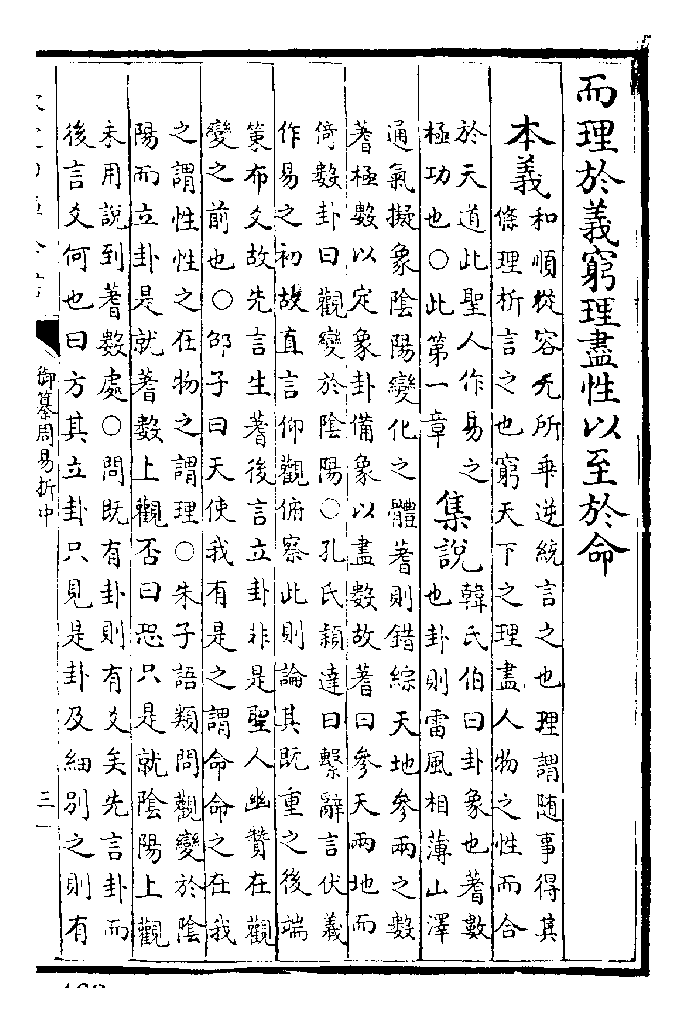 而理於義窮理盡性以至於命
本義
和順從容无所乖逆統言之也理謂隨事得其
條理析言之也窮天下之理盡人物之性而合
於天道此聖人作易之
極功也○此第一章
集說
韓氏伯曰卦象也蓍數
也卦則雷風相薄山澤
通氣擬象陰陽變化之體蓍則錯綜天地參兩之數
蓍極數以定象卦備象以盡數故蓍曰參天兩地而
倚數卦曰觀變於陰陽○孔氏穎達曰繫辭言伏羲
作易之初故直言仰觀俯察此則論其既重之後端
策布爻故先言生蓍後言立卦非是聖人幽贊在觀
變之前也○邵子曰天使我有是之謂命命之在我
之謂性性之在物之謂理○朱子語類問觀變於陰
陽而立卦是就蓍數上觀否曰恐只是就陰陽上觀
未用說到蓍數處○問既有卦則有爻矣先言卦而
後言爻何也曰方其立卦只見是卦及細別之則有
御纂周易折中
三